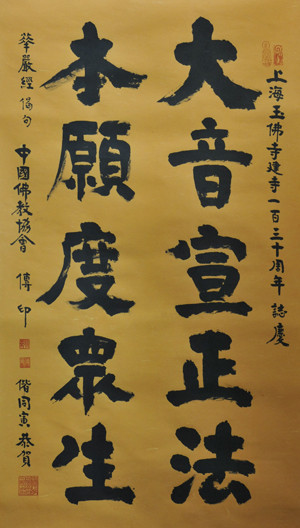 上海玉佛寺建寺一百三十周年誌慶
大音宣正法
本願度眾生
華嚴經偈句
中國佛教協會
傳印
偕同寅恭賀